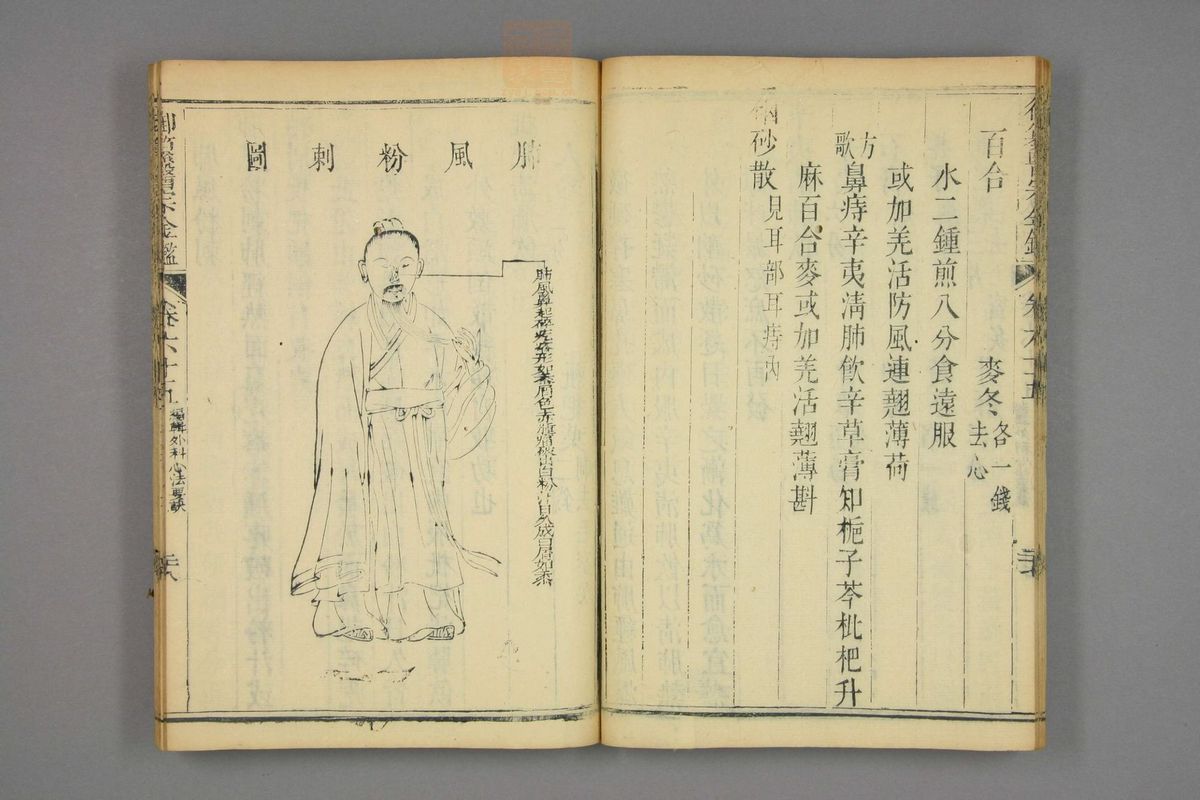 百合　麥冬各一錢去心
水二鍾煎八分食遠服
或加羌活防風連翹薄荷
方歌
鼻痔辛夷清肺飲辛草膏知梔子芩枇杷升
麻百合麥或加羌活翹薄斟
硇砂散見耳部耳痔內
卷六十五
肺風粉刺圖
肺風鼻起碎疙瘩形如黍屑色赤腫痛破出白粉汁日久成白屑如黍
御纂醫宗金鑑
卷六十五
編輯外科心法要訣
二十八